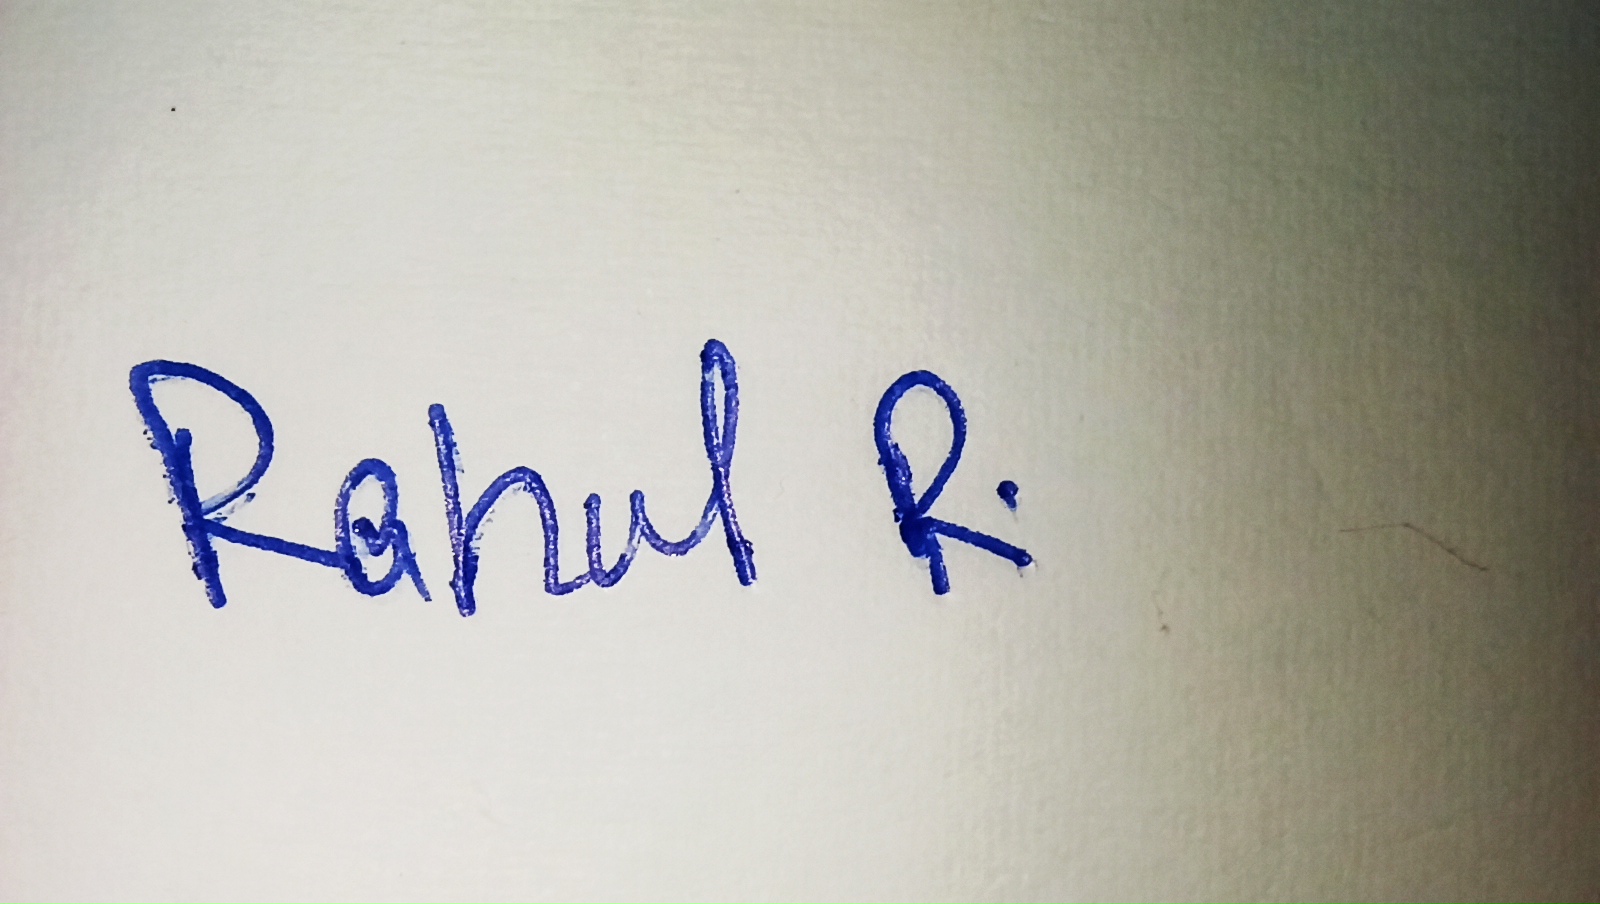 Rahul R.